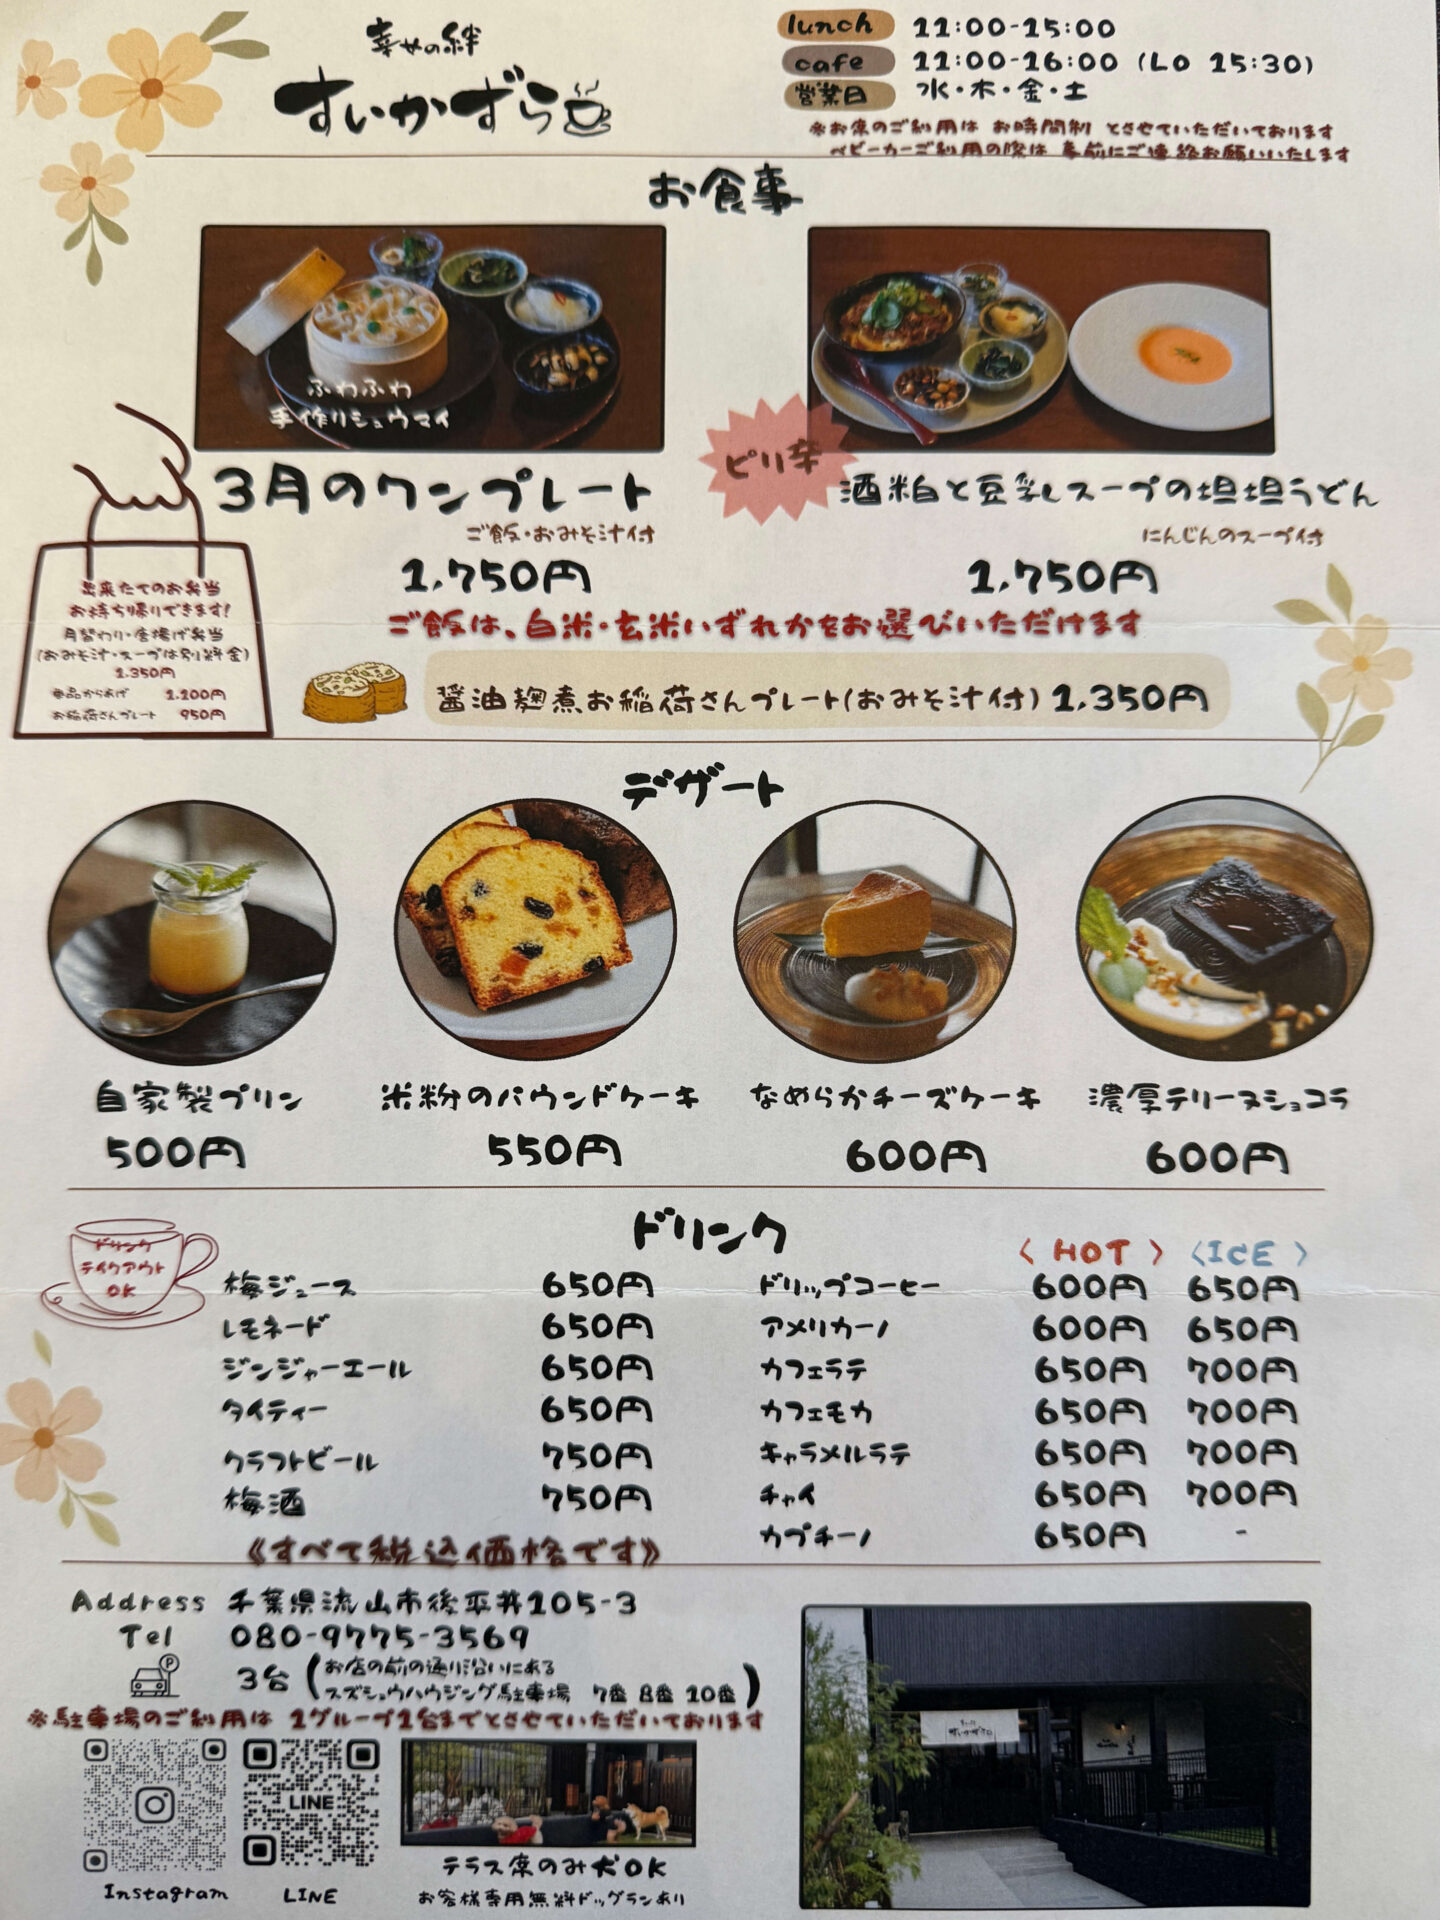 幸せの絆
すいかずら
lunch 11:00-15:00
cafe 11:00-16:00 (LO 15:30)
営業日 水・木・金・土
※お席のご利用は お時間制 とさせていただいております
ベビーカーご利用の際は 事前にご連絡お願いいたします
お食事
ふわふわ
手作りシュウマイ
3月のワンプレート
ご飯・おみそ汁付
1,750円
ピリ辛
酒粕と豆乳スープの坦坦うどん
にんじんのスープ付
1,750円
ご飯は、白米・玄米いずれかをお選びいただけます
出来たてのお弁当
お持ち帰りできます!
月替わり・唐揚げ弁当
(おみそ汁・スープは別料金)
1,350円
単品からあげ 1,200円
お稲荷さんプレート 950円
醤油麹煮お稲荷さんプレート(おみそ汁付) 1,350円
デザート
自家製プリン
500円
米粉のパウンドケーキ
550円
なめらかチーズケーキ
600円
濃厚テリーヌショコラ
600円
ドリンク
ドリンク
テイクアウト
OK
梅ジュース 650円
レモネード 650円
ジンジャーエール 650円
タイティー 650円
クラフトビール 750円
梅酒 750円
〈 HOT 〉 〈ICE 〉
ドリップコーヒー 600円 650円
アメリカーノ 600円 650円
カフェラテ 650円 700円
カフェモカ 650円 700円
キャラメルラテ 650円 700円
チャイ 650円 700円
カプチーノ 650円 -
《すべて税込価格です》
Address 千葉県流山市後平井105-3
Tel 080-9775-3569
P 3台 (お店の前の通り沿いにある
スズシュウハウジング駐車場 7番 8番 10番)
※駐車場のご利用は 1グループ1台までとさせていただいております
Instagram
LINE
LINE
テラス席のみ犬OK
お客様専用無料ドッグランあり
すいかずら